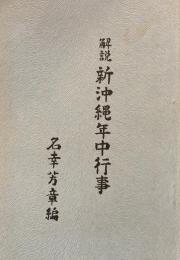 解説 新沖縄年中行事
名幸芳章編